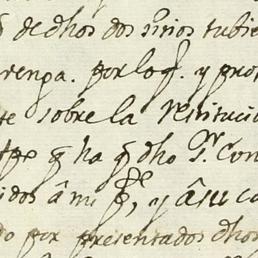 de dhos dos sitios tubie
renga. por loq. y pro
te sobre la restitucio
q ha q dho Sr. Con
idos â mi pte, y â su c
do por presentados dhos